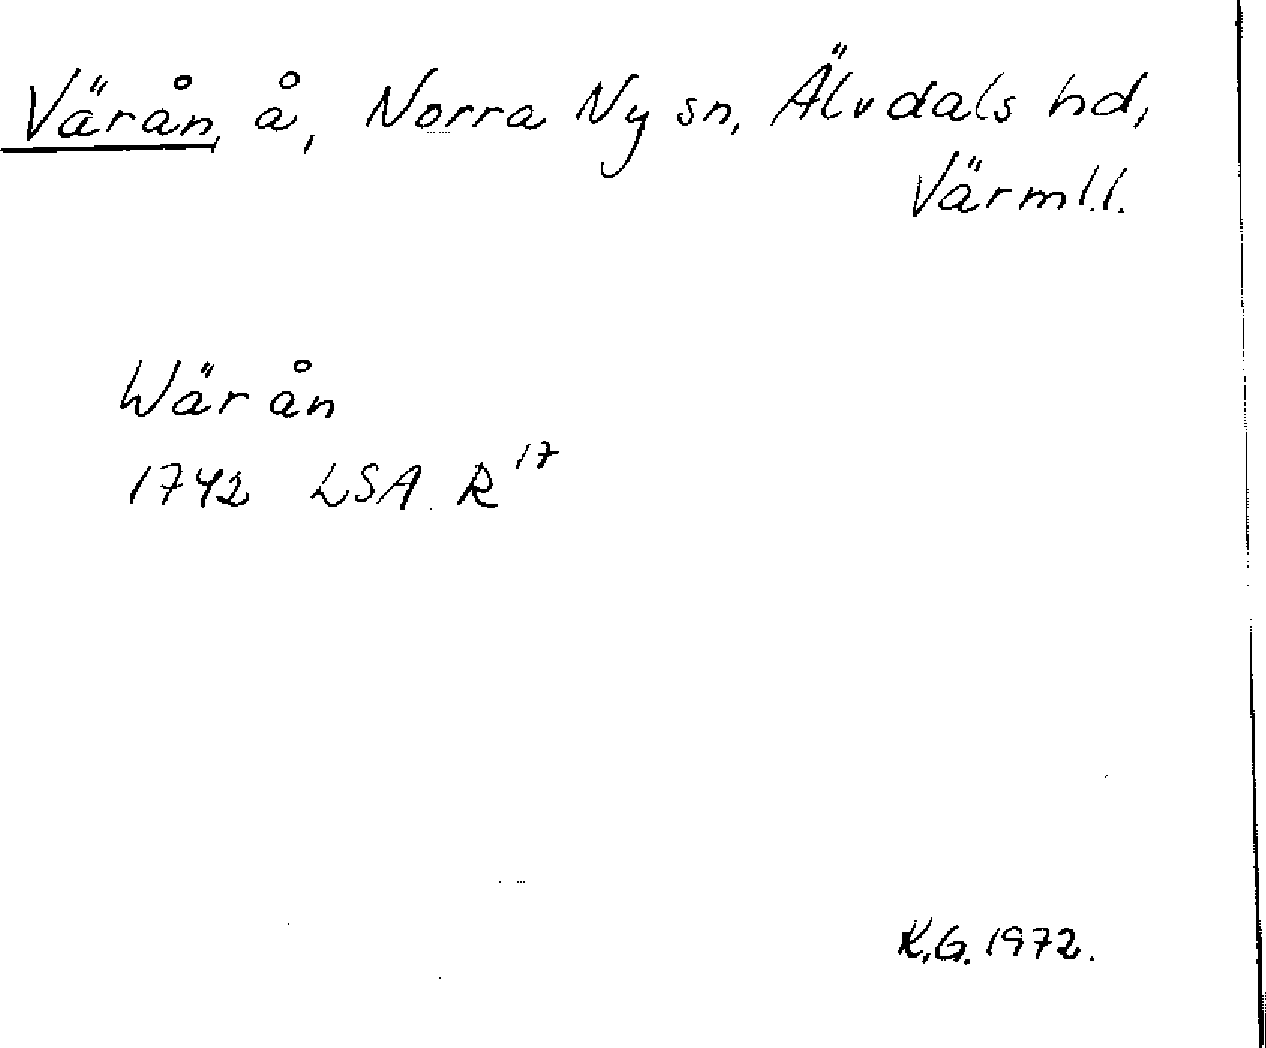 Värån, å, Norra Ny sn, Älvdals hd,
Värml.l.
Wär ån
1742 LSA. R 17
K.G. 1972.